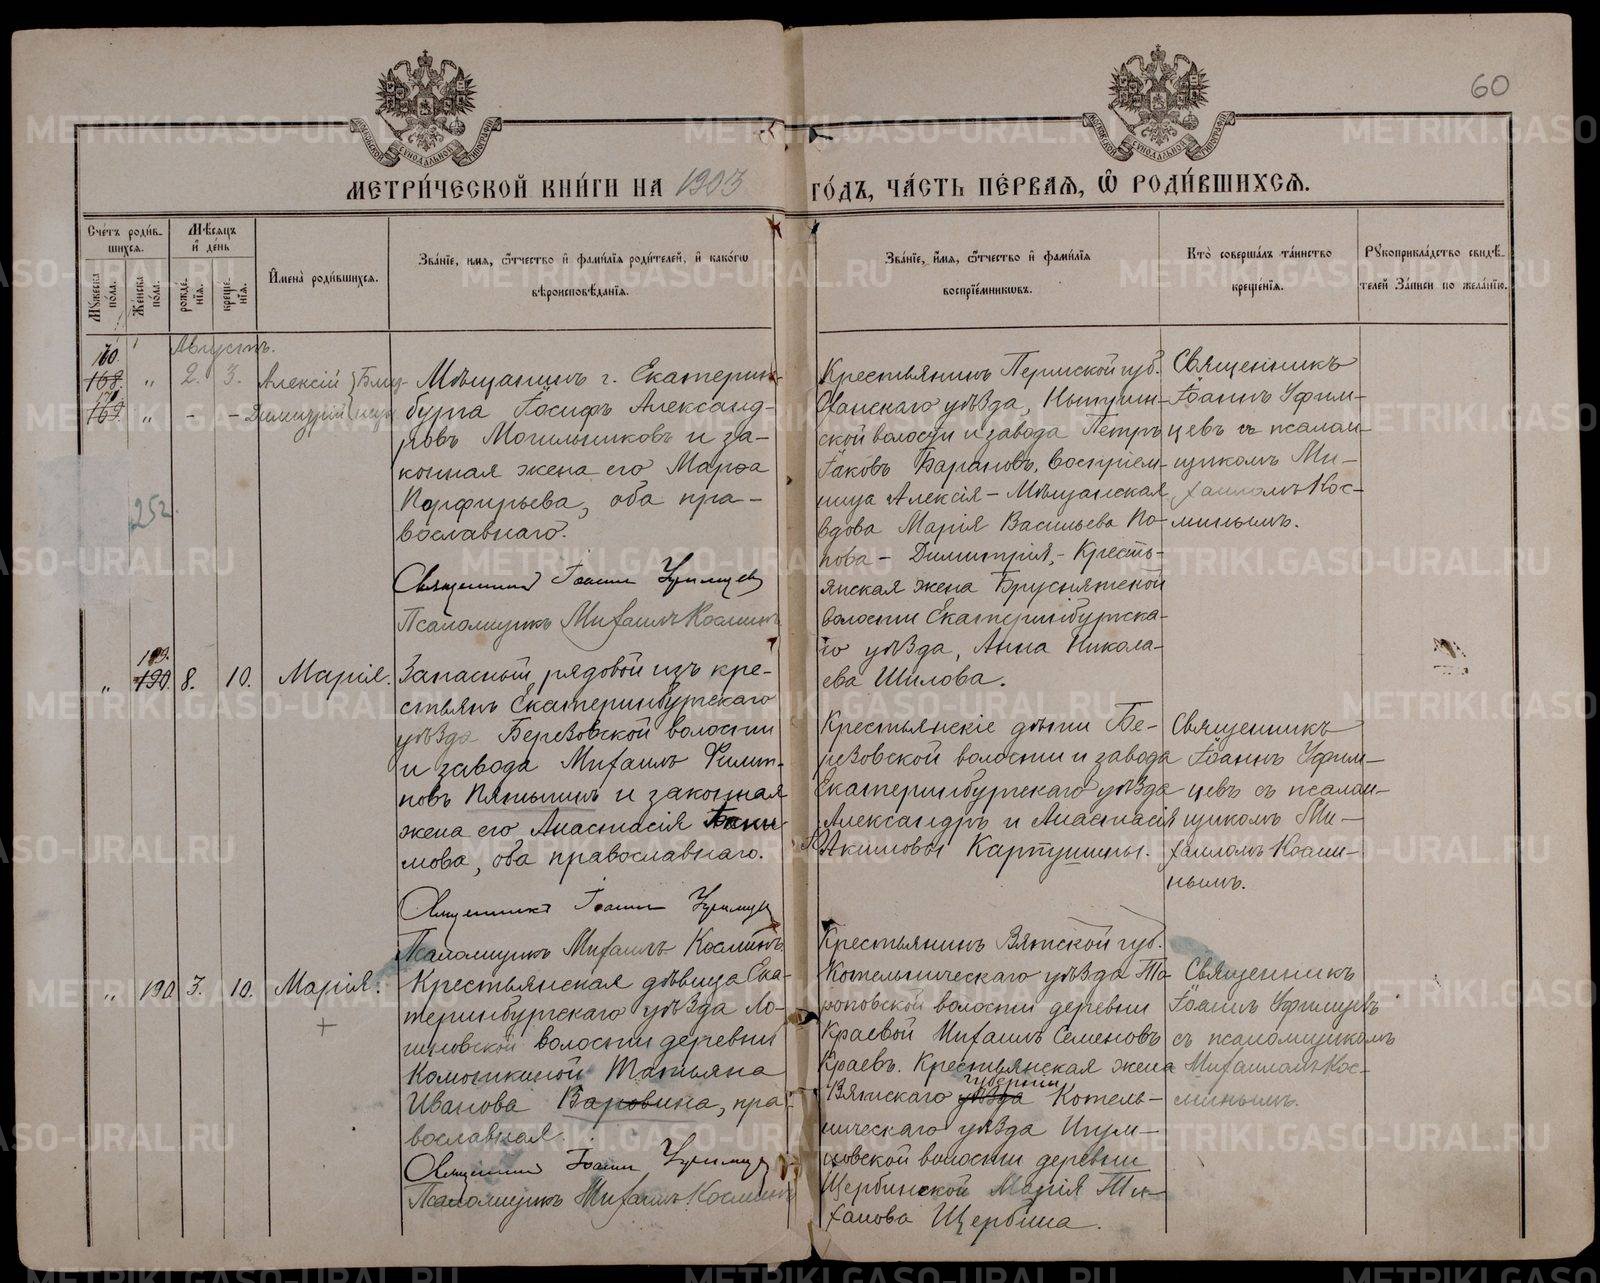 60
МЕТРИ́ЧЕСКОЙ КНИ́ГИ НА 1903 ГО́ДЪ, ЧА́СТЬ ПЕ́РВАѦ, Ѡ҆ РОДИ́ВШИХСѦ.
Сче́тъ роди́вшихсѧ.
Мꙋ́жеска по́ла.
Же́нска по́ла.
Мѣ́сѧцъ и҆ де́нь
рожде́нїѧ.
креще́нїѧ.
И҆мена̀ роди́вшихсѧ.
Зва́нїе, и҆мѧ, ѻ҆́тчество и҆ фами́лїѧ роди́телей, и҆ како́гѡ
вѣроисповѣ́данїѧ.
Зва́нїе, и҆́мѧ, ѻ҆́тчество и҆ фами́лїѧ
воспрїе́мникѡвъ.
Кто̀ соверша́лъ та́инство
креще́нїѧ.
Рꙋкоприкла́дство свидѣ́телей За́писи по жела́нїю.
Августъ.
170.
168. „ 2. 3. Алексій } Близ-
169. „ - - Димитрій } нецы
252
Мѣщанинъ г. Екатерин-
бурга Іосифъ Александ-
ровъ Могильниковъ и за-
конная жена его Марѳа
Порфирьева, оба пра-
вославнаго.
Священникъ Іоаннъ Уфимцевъ
Псаломщикъ Михаилъ Косминъ
Крестьянинъ Пермской губ.
Оханскаго уѣзда, Нытвин-
ской волости и завода Петръ
Іаковъ Барановъ, воспріем-
ница Алексія – Мѣщанская
вдова Марія Васильева По-
пова – Димитрія, – Кресть-
янская жена Бруснятской
волости Екатеринбургска-
го уѣзда, Анна Никола-
ева Шилова.
Священникъ
Іоаннъ Уфим-
цевъ съ псалом-
щикомъ Ми-
хаиломъ Кос-
минымъ.
„ 190. 8. 10. Марія.
Запасный рядовой изъ кре-
стьянъ Екатеринбургскаго
уѣзда Березовской волости
и завода Михаилъ Филип-
повъ Пятыгинъ и законная
жена его Анастасія
мова, оба православнаго.
Священникъ Іоаннъ Уфимцевъ
Псаломщикъ Михаилъ Косминъ
Крестьянскіе дѣти Бе-
резовской волости и завода
Екатеринбургскаго уѣзда
Александръ и Анастасія
Акимовы Картушины.
Священникъ
Іоаннъ Уфим-
цевъ съ псалом-
щикомъ Ми-
хаиломъ Косми-
нымъ.
„ 190 3. 10. Марія.
Крестьянская дѣвица Ека-
теринбургскаго уѣзда Ло-
гиновской волости деревни
Комоткиной Татьяна
Иванова Варовина, пра-
вославная.
Священникъ Іоаннъ Уфимцевъ
Псаломщикъ Михаилъ Косминъ
Крестьянинъ Вятской губ.
Котельническаго уѣзда То-
роповской волости деревни
Краевой Михаилъ Семеновъ
Краевъ. Крестьянская жена
губерніи
Вятскаго уѣзда Котель-
ническаго уѣзда Игум-
новской волости деревни
Щербинской Марія Ти-
ханова Щербина.
Священникъ
Іоаннъ Уфимцевъ
съ псаломщикомъ
Михаиломъ Кос-
минымъ.
METRIKI.GASO-URAL.RU